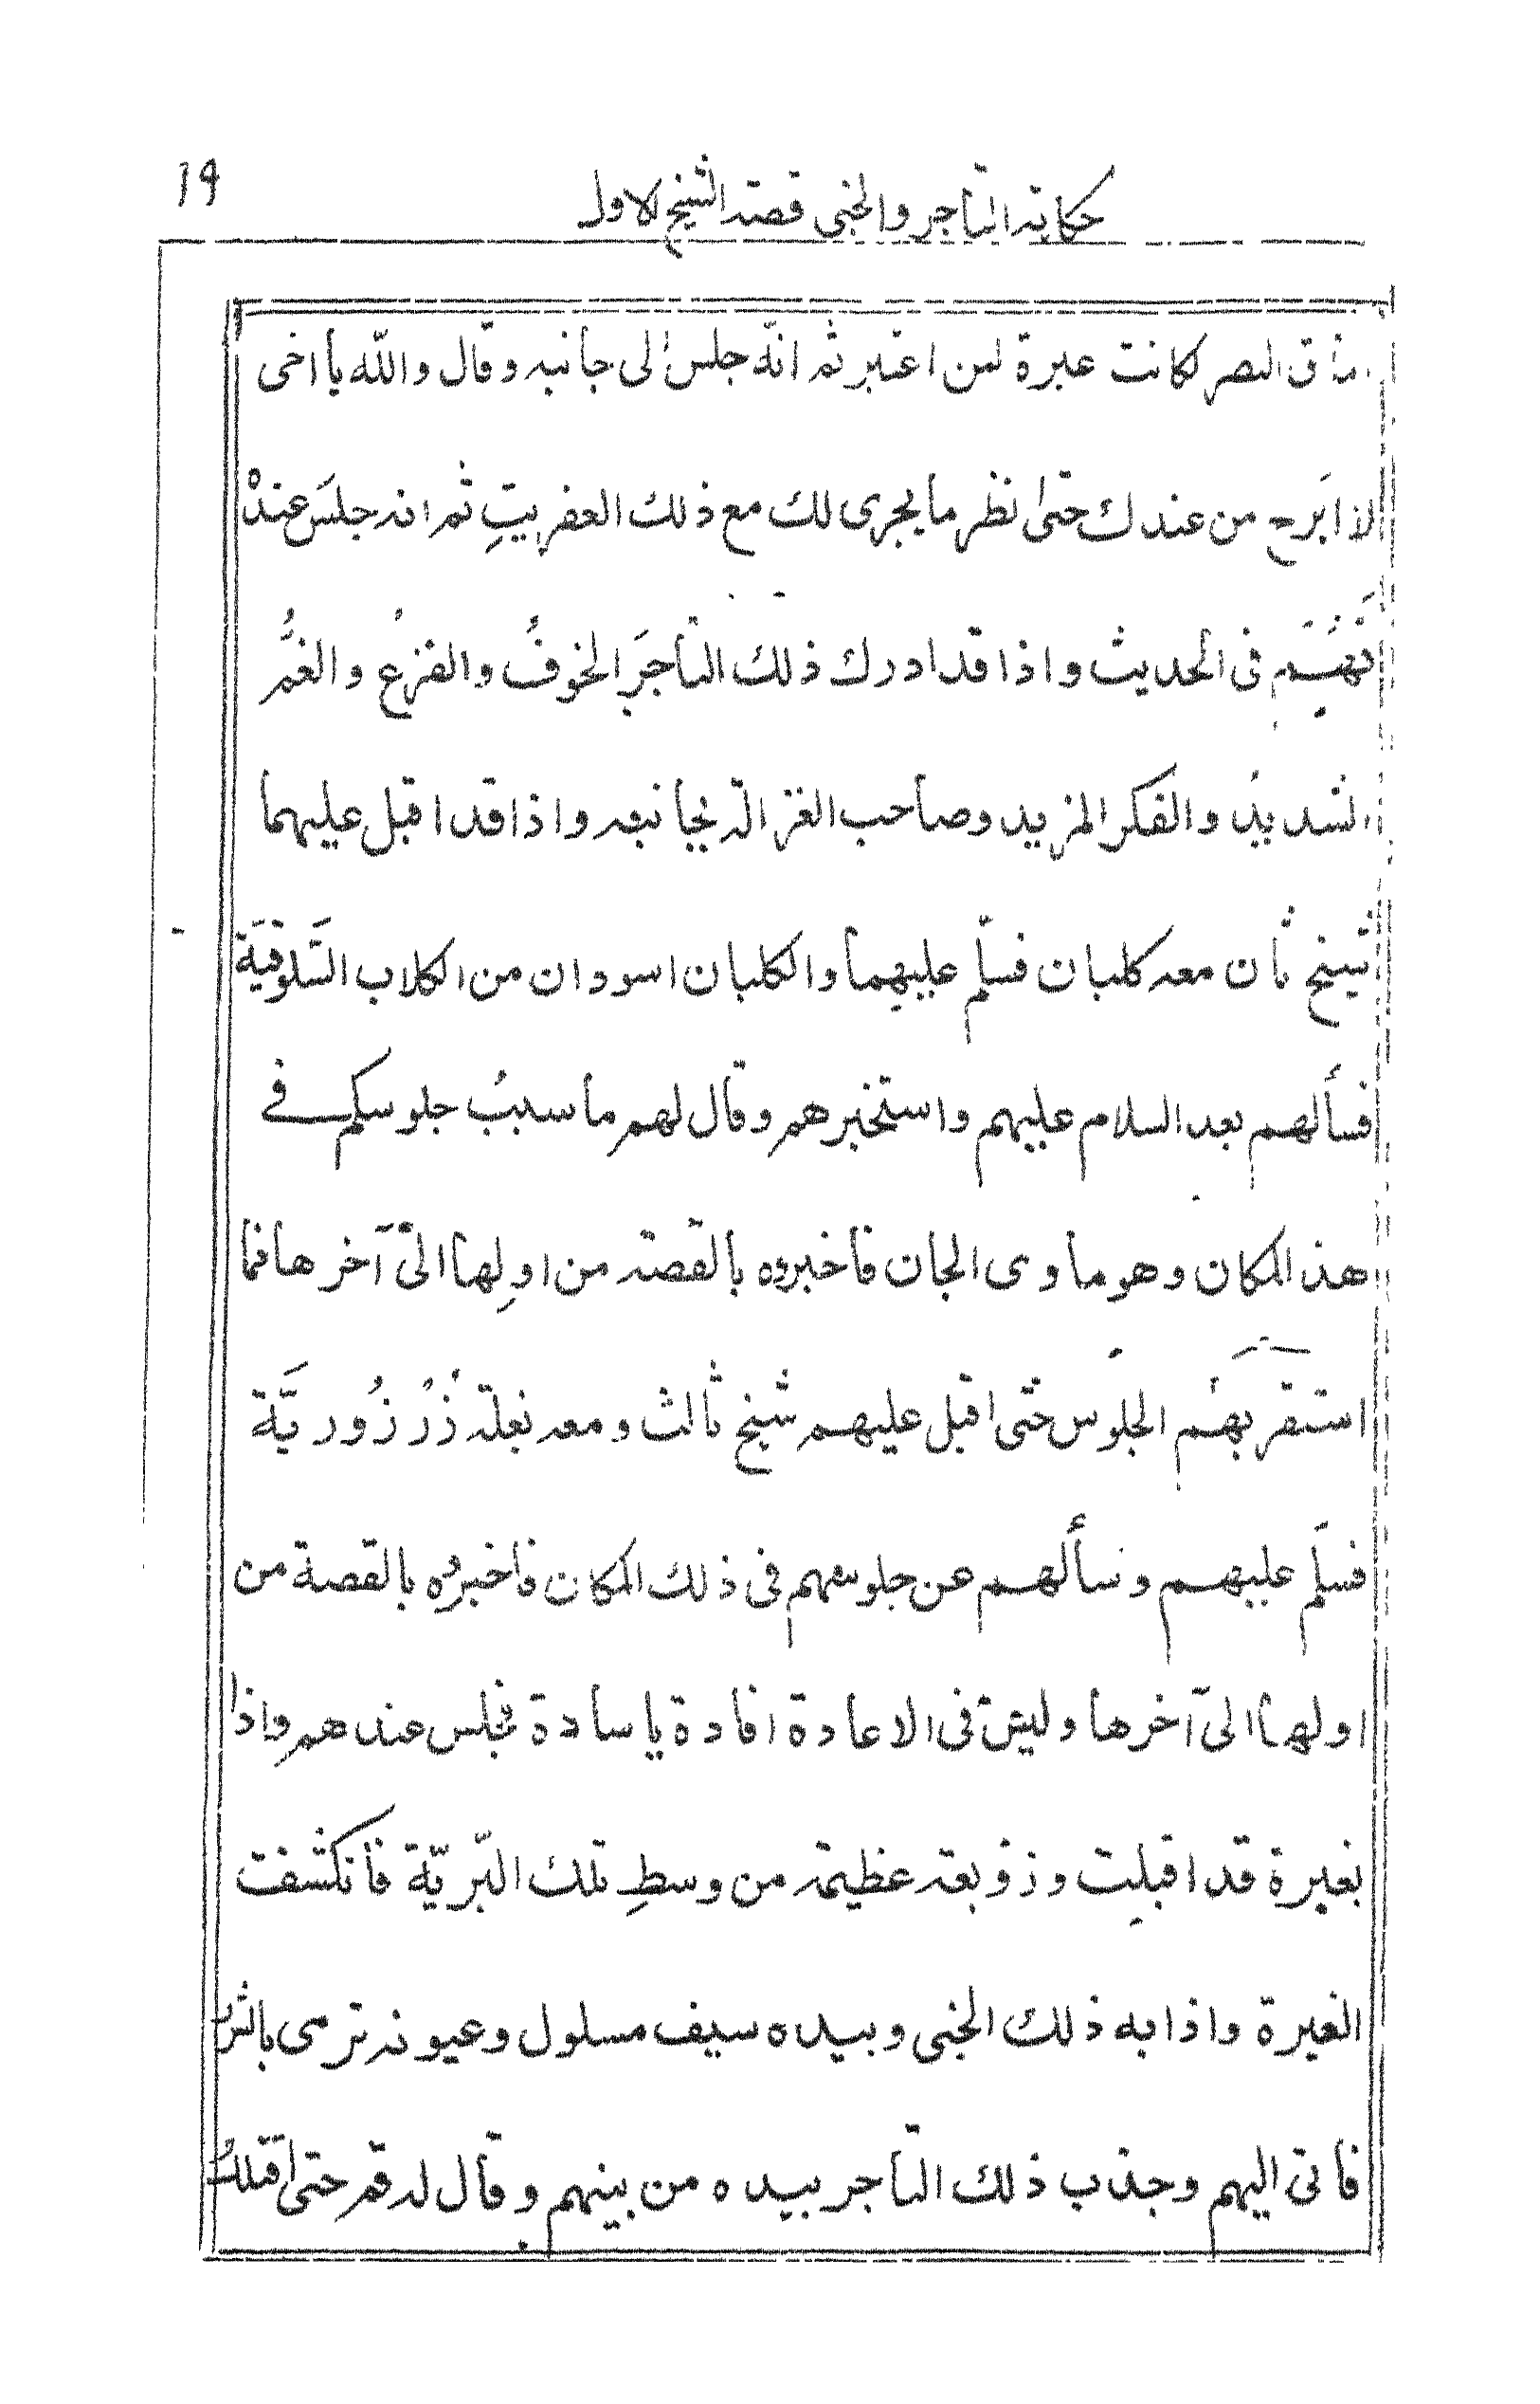 حكاية التاجر والجنى قصة الشيخ الاول
١٩
مأق البصر لكانت عبرة لمن اعتبر ثم انّه جلس الى جانبه وقال والله يا اخى
لا ابرح من عندك حتى انظر ما يجرى لك مع ذلك العفريتِ ثم انه جلس عنده
فى الحديث واذا قد ادرك ذلك التاجرَ الخوفُ والفزعُ والغمُّ
الشديدُ والفكر المزيد وصاحب الغزالة بجانبه واذا قد اقبل عليهما
شيخ ثان معه كلبان فسلّم عليهما والكلبان اسودان من الكلاب السَّلوقيّة
فسألهم بعد السلام عليهم واستخبرهم وقال لهم ما سببُ جلوسكم فى
هذا المكان وهو ماوى الجان فاخبروه بالقصة من اولِها الىٓ آخرها فما
استقر بهم الجلوس حتى اقبل عليهم شيخ ثالث ومعه بغلة زُرْزُوريَّة
فسلّم عليهم وسألهم عن جلوسهم فى ذلك المكان فاخبروه بالقصة من
اولها الىٓ آخرها وليس فى الاعادة افادة يا سادة فجلس عندهم واذا
بغبرة قد اقبلت وزوبعة عظيمة من وسطِ تلك البرّيّة فانكشفت
الغبرة واذا به ذلك الجنى وبيده سيف مسلول وعيونه ترمى بالشرر
فاتى اليهم وجذب ذلك التاجر بيده من بينهم وقال له قم حتى اقتلكَ